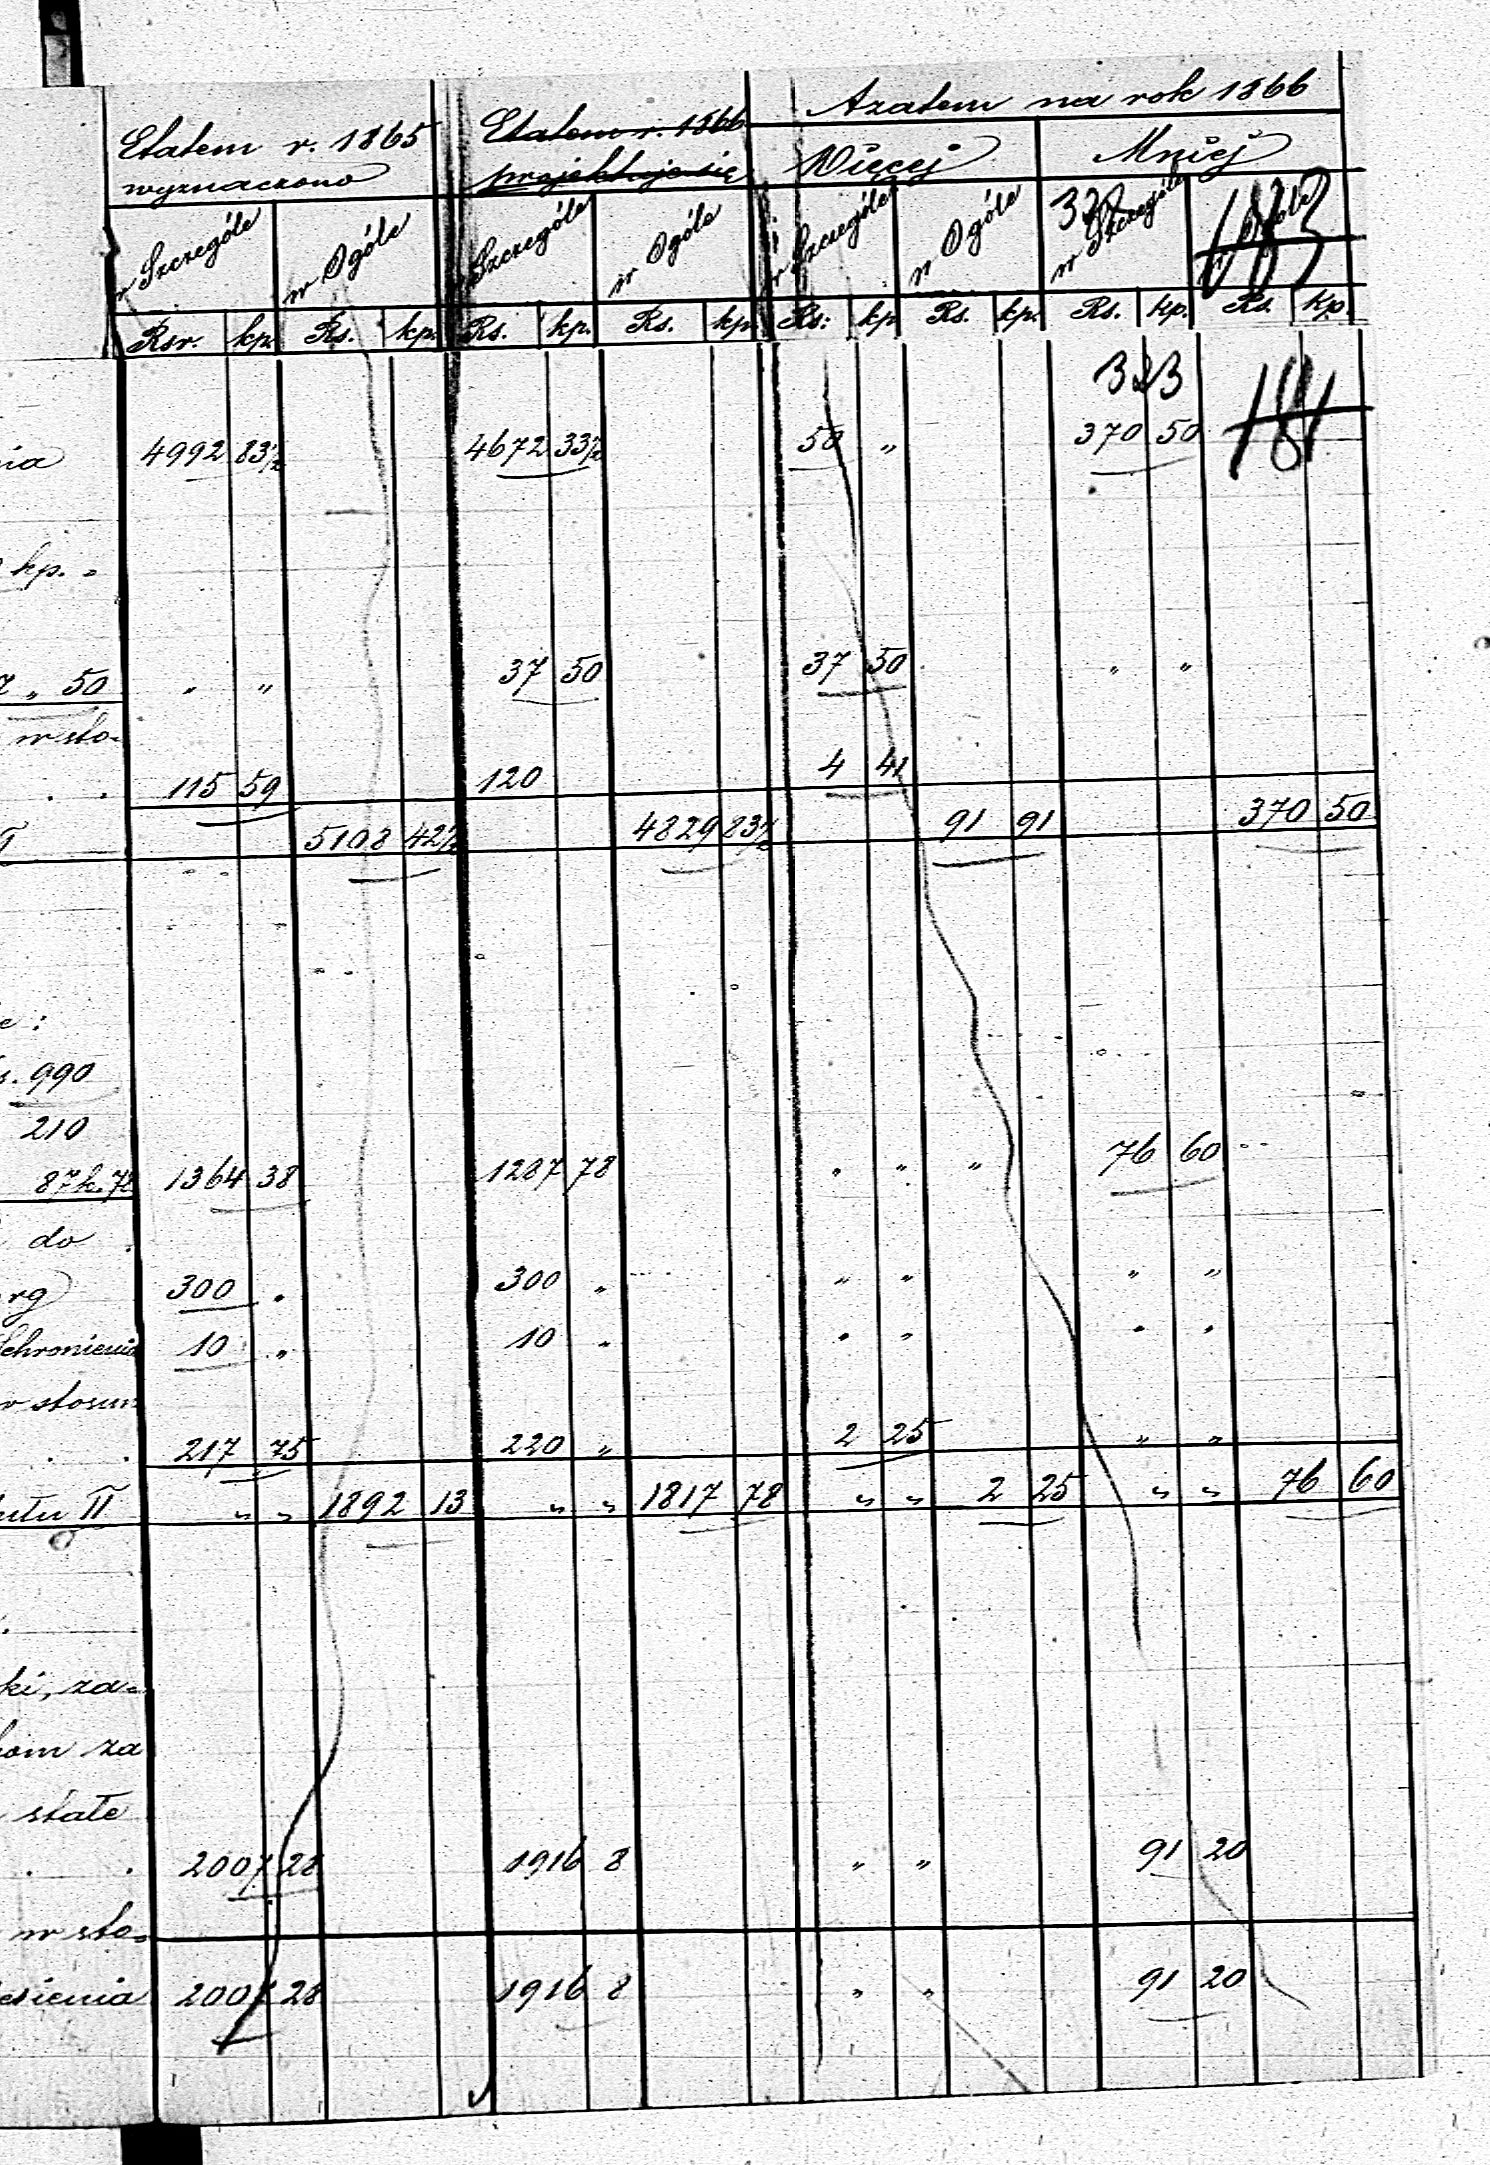 Azatem na rok 1866
Etatem r. 1865 Etatem r. 1866
wyznaczono projektuje się Więcej Mniej
w Szczególe w Ogóle w Szczególe w Ogóle w Szczególe w Ogóle w Szczególe w Ogóle
183
Rsr. kp. Rs. kp. Rs. kp. Rs. kp. Rs: kp Rs. kp. Rs. kp. Rs. kp.
323 181
nia 4992 83½ 4672 33½ 50 „ 370 50
kp. „
„ 50 „ „ 37 50 37 50 „ „
w sto-
. . 115 59 120 4 41
5108 42½ 4829 83½ 91 91 370 50
e:
s. 990
210
87 k. 78 1364 38 1287 78 „ „ „ 76 60
do
rg 300 „ 300 „ „ „ „ „
Schronienia 10 „ 10 „ „ „ „ „
w stosun
. . 217 75 220 „ 2 25 „ „
ułu II „ „ 1892 13 „ „ 1817 78 „ „ 2 25 „ „ 76 60
ki, za-
kom za
stałe
. . 2007 28 1916 8 „ „ 91 20
w sto-
esienia 2007 28 1916 8 „ „ 91 20